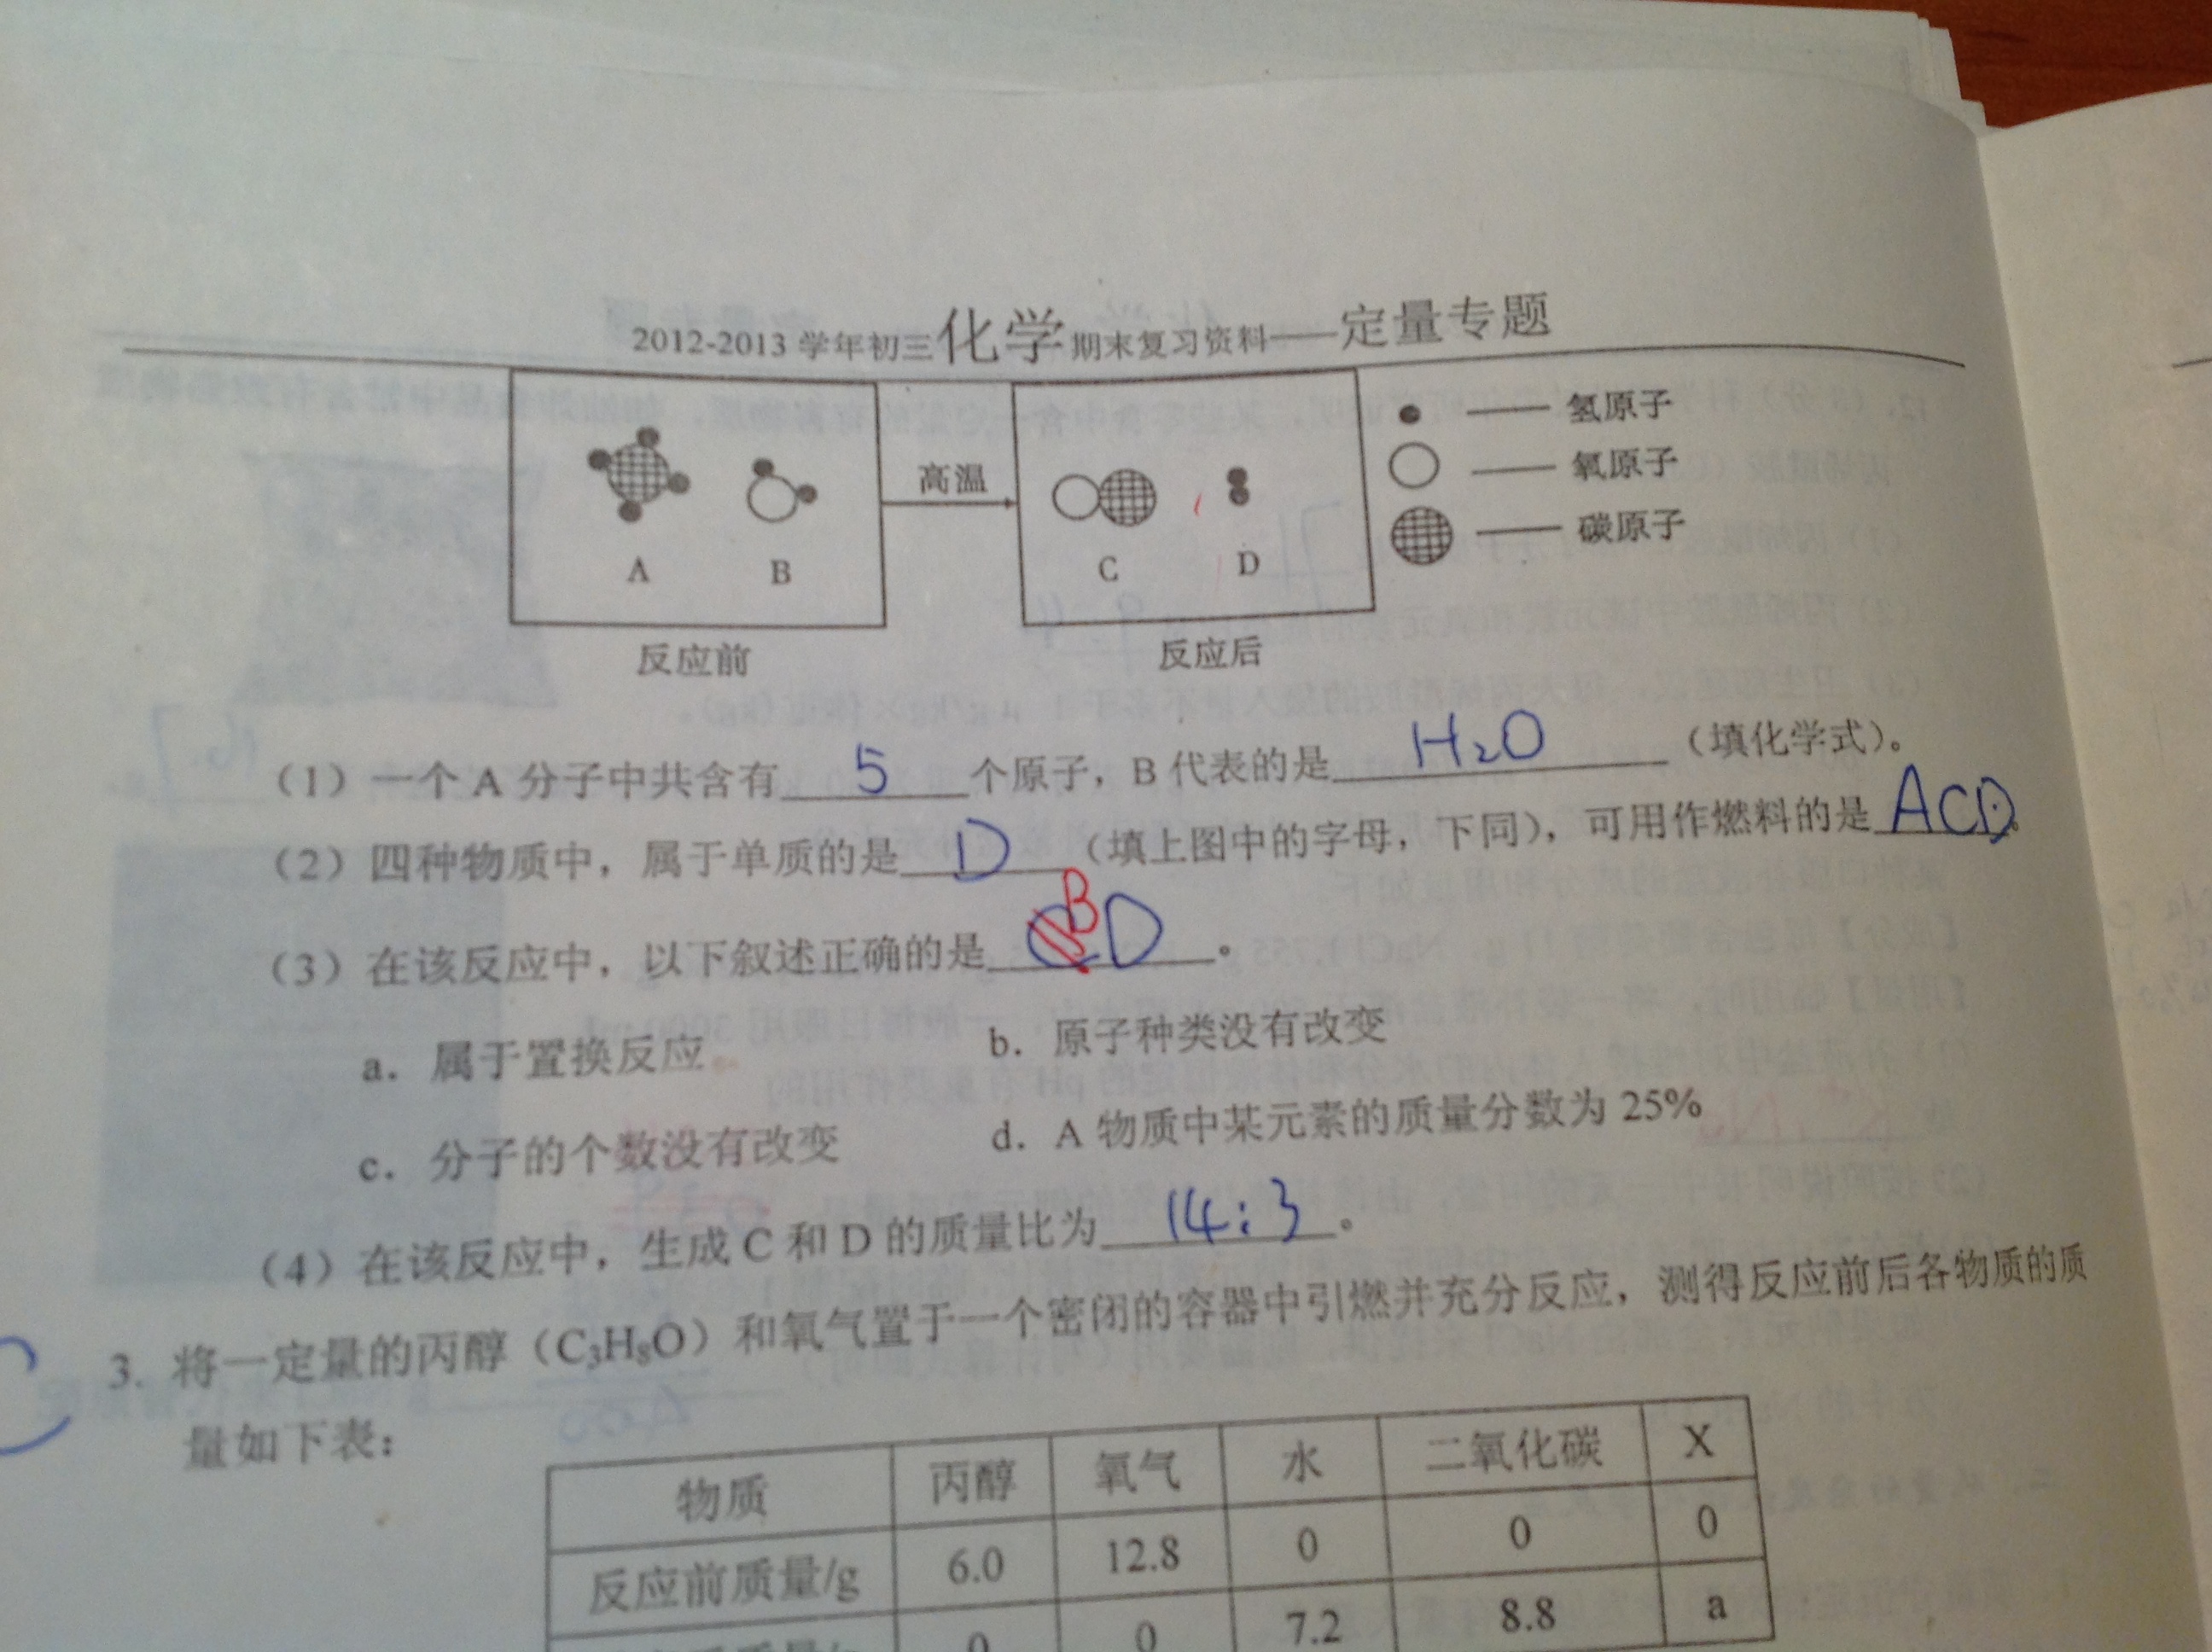 2012-2013 学年初三化学期末复习资料——定量专题
A B 高温 C D
—— 氢原子
—— 氧原子
—— 碳原子
反应前 反应后
（1）一个 A 分子中共含有 5 个原子，B 代表的是 H₂O （填化学式）。
（2）四种物质中，属于单质的是 D （填上图中的字母，下同），可用作燃料的是 ACD。
（3）在该反应中，以下叙述正确的是 B D 。
a．属于置换反应 b．原子种类没有改变
c．分子的个数没有改变 d．A 物质中某元素的质量分数为 25%
（4）在该反应中，生成 C 和 D 的质量比为 14:3 。
3. 将一定量的丙醇（C₃H₈O）和氧气置于一个密闭的容器中引燃并充分反应，测得反应前后各物质的质
量如下表：
物质 丙醇 氧气 水 二氧化碳 X
反应前质量/g 6.0 12.8 0 0 0
0 0 7.2 8.8 a